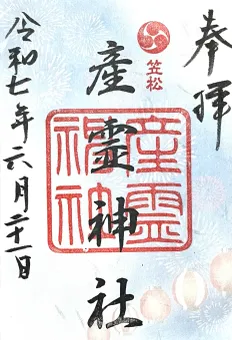 奉拝
笠松
産霊神社
産霊神社
令和七年六月二十一日